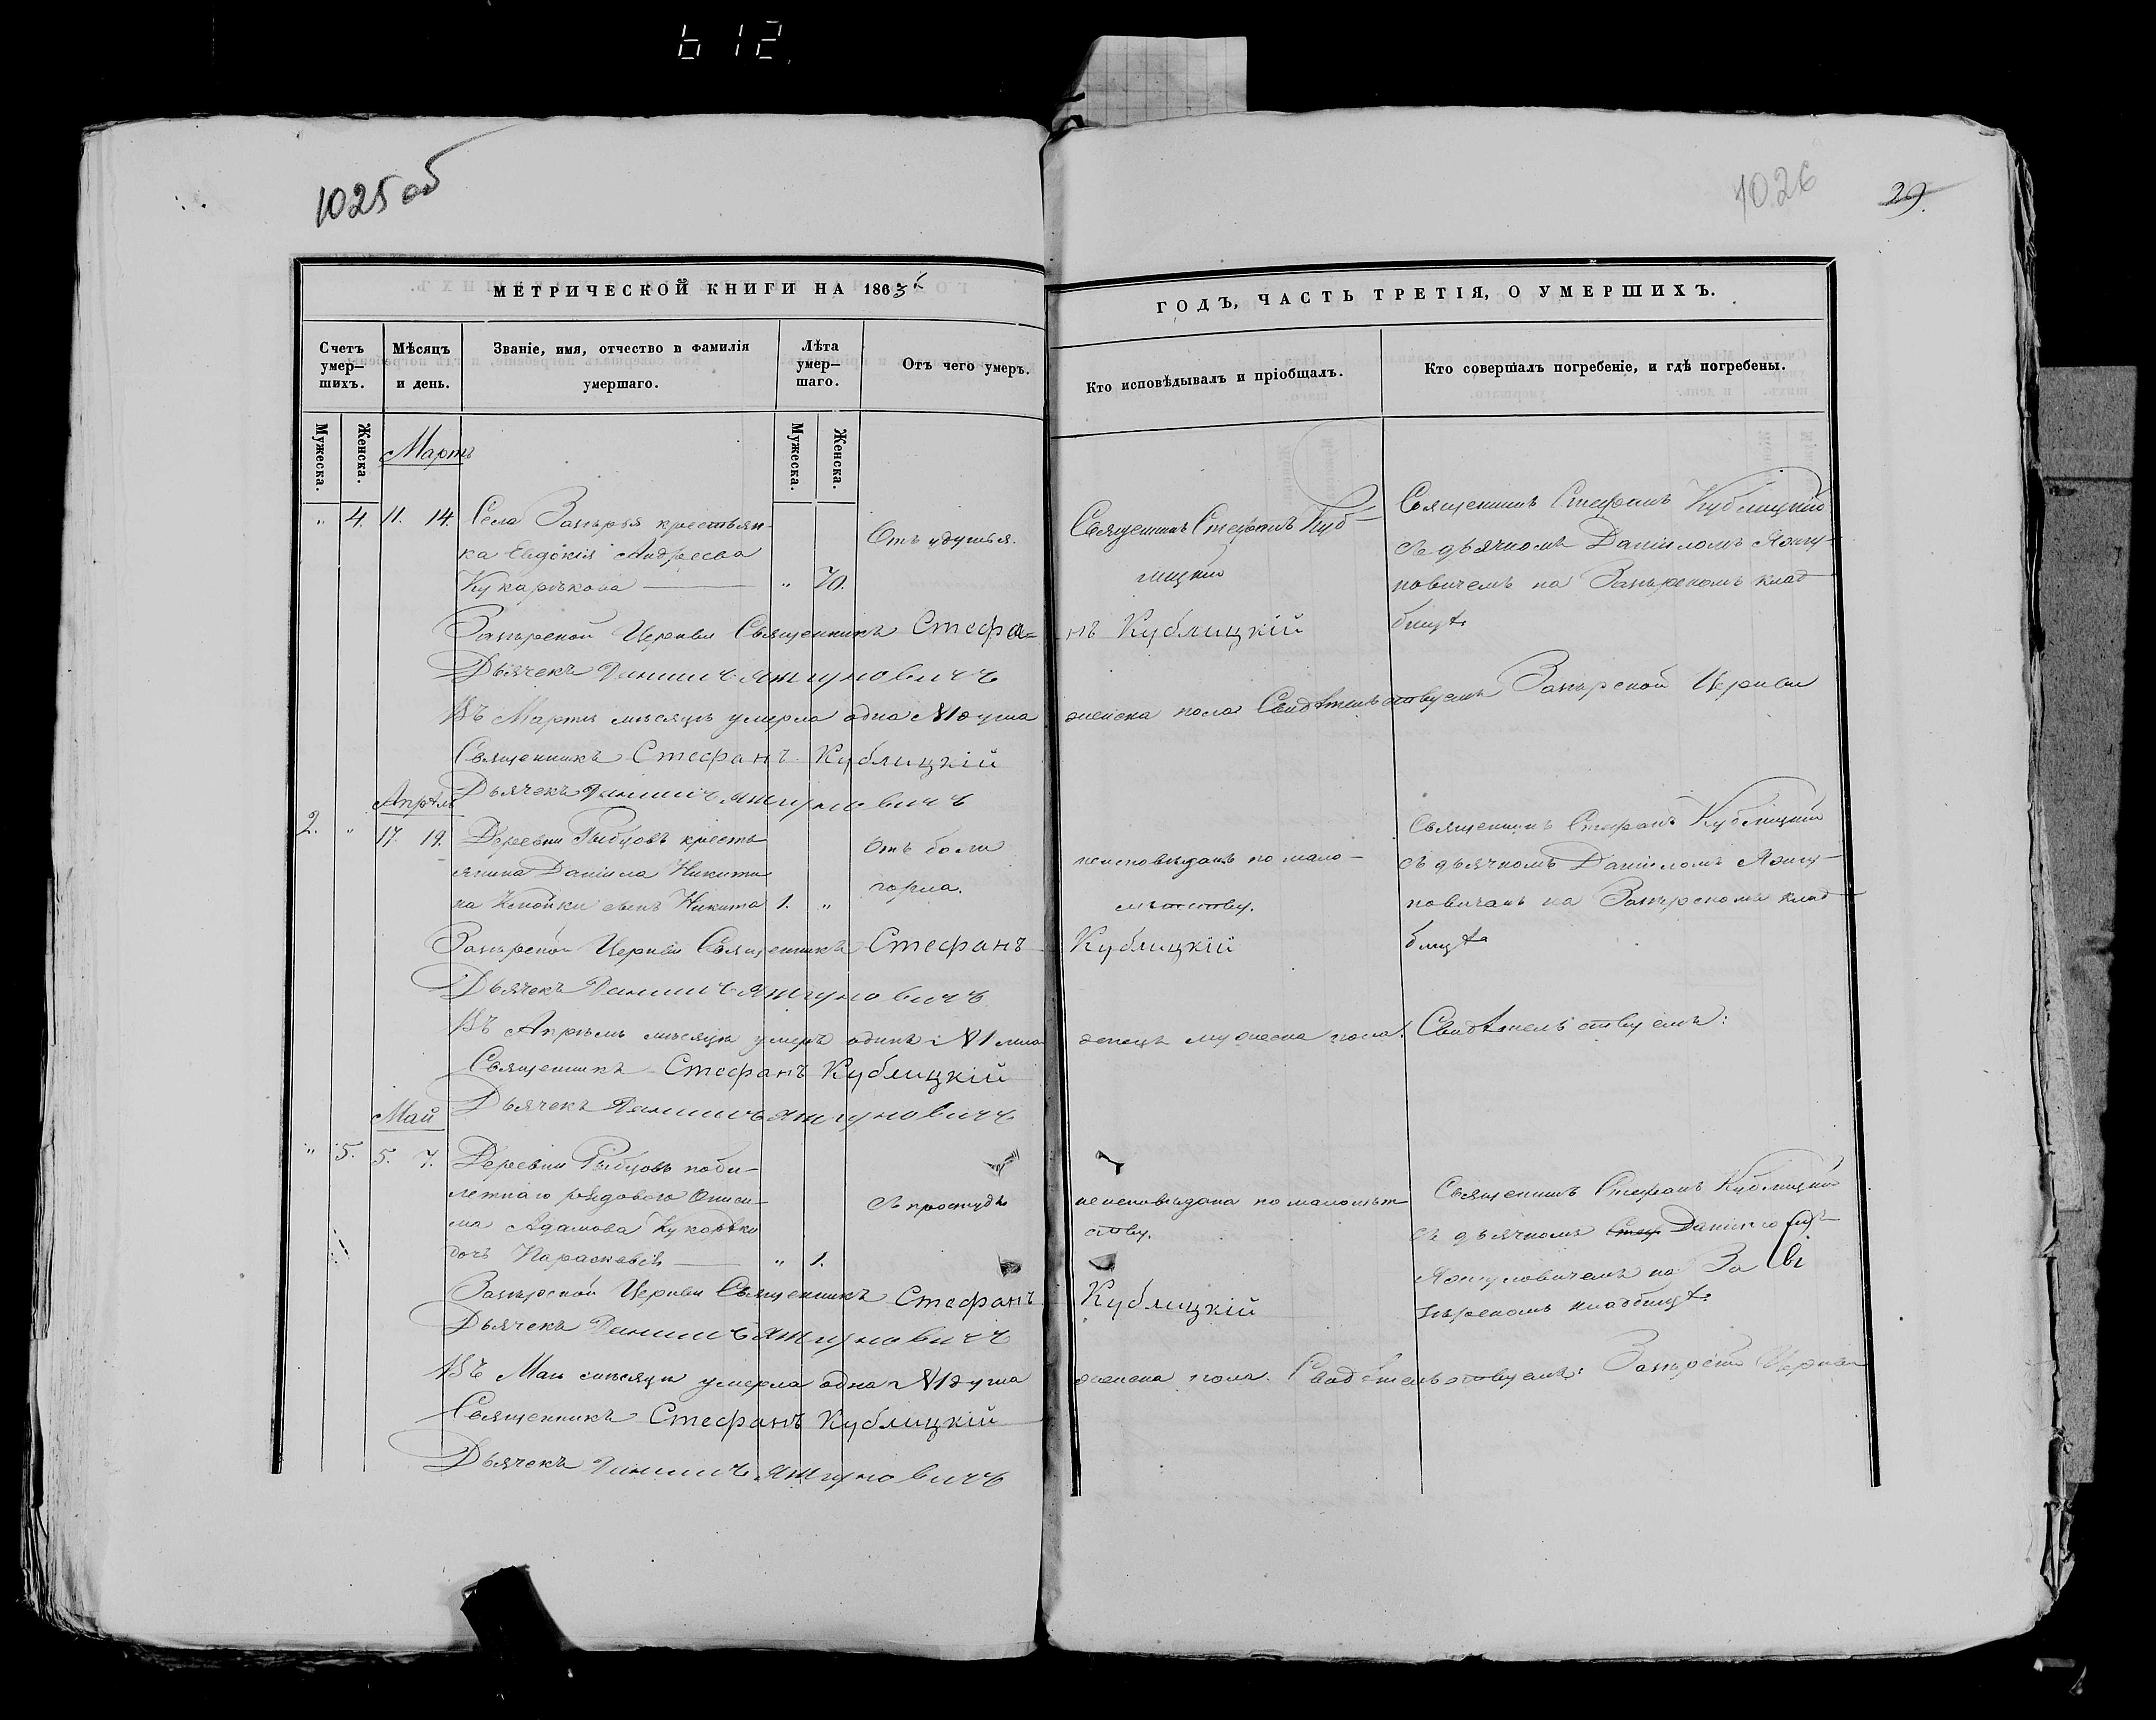 612
1025 об
1026
29.
МЕТРИЧЕСКОЙ КНИГИ НА 1865
ГОДЪ, ЧАСТЬ ТРЕТІЯ, О УМЕРШИХЪ.
Счетъ умер–шихъ.
Мѣсяцъ и день.
Званіе, имя, отчество и фамилія умершаго.
Лѣта умер–шаго.
Отъ чего умеръ.
Кто исповѣдывалъ и пріобщалъ.
Кто совершалъ погребеніе, и гдѣ погребены.
Мужеска.
Женска.
Мужеска.
Женска.
Мартъ
„ 4. 11. 14. Села Запырья крестьян-
ка Евдокія Андреева
Кукарькова „ 70.
Отъ удушья.
Священникъ Стефанъ Куб-
лицкій
Священникъ Стефанъ Кублицкій
съ дьячкомъ Даніиломъ Яжгу-
новичемъ на Запырскомъ клад
бищѣ
Запырской Церкви Священникъ Стефа=нъ Кублицкій
Дьячекъ Даніилъ Яжгуновичъ
Въ Мартѣ мѣсяцѣ умерла одна №1 душа женска пола Свидѣтельствуемъ Запырской Церкви
Священникъ Стефанъ Кублицкій
Дьячекъ Даніилъ Яжгуновичъ
Апрѣль
2. „ 17. 19. Деревни Рыбцовъ кресть
янина Даніила Никити
на сынъ Никита 1. „
Отъ боли
горла.
неисповѣданъ по мало-
лѣтству.
Священникъ Стефанъ Кублицкій
съ дьячкомъ Даніиломъ Яжгу-
новичемъ на Запырскомъ клад
бищѣ
Запырской Церкви Священникъ Стефанъ Кублицкій
Дьячекъ Даніилъ Яжгуновичъ
Въ Апрѣлѣ мѣсяцѣ умеръ одинъ №1 мла денецъ мужеска пола. Свидѣтельствуемъ:
Священникъ Стефанъ Кублицкій
Дьячекъ Даніилъ Яжгуновичъ
Май
„ 5. 5. 7. Деревни Рыбцовъ поби-
летнаго рядоваго Ониси-
ма Адамова Кукорѣки
дочь Параскевія „ 1.
Съ простуды
неисповѣдана по малолѣт
ству.
Священникъ Стефанъ Кублицкій
съ дьячкомъ Стеф Даніило
Яжгуновичемъ на За
пырскомъ кладбищѣ
Запырской Церкви Священникъ Стефанъ Кублицкій
Дьячекъ Даніилъ Яжгуновичъ
Въ Маѣ мѣсяцѣ умерла одна №1 душа женска пола. Свидѣтельствуемъ: Запырской Церкви
Священникъ Стефанъ Кублицкій
Дьячекъ Даніилъ Яжгуновичъ